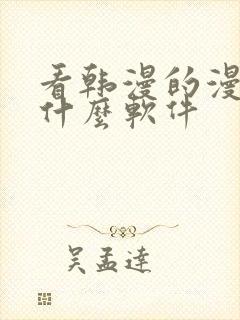 看韩漫的漫
什麼軟件
吴孟達